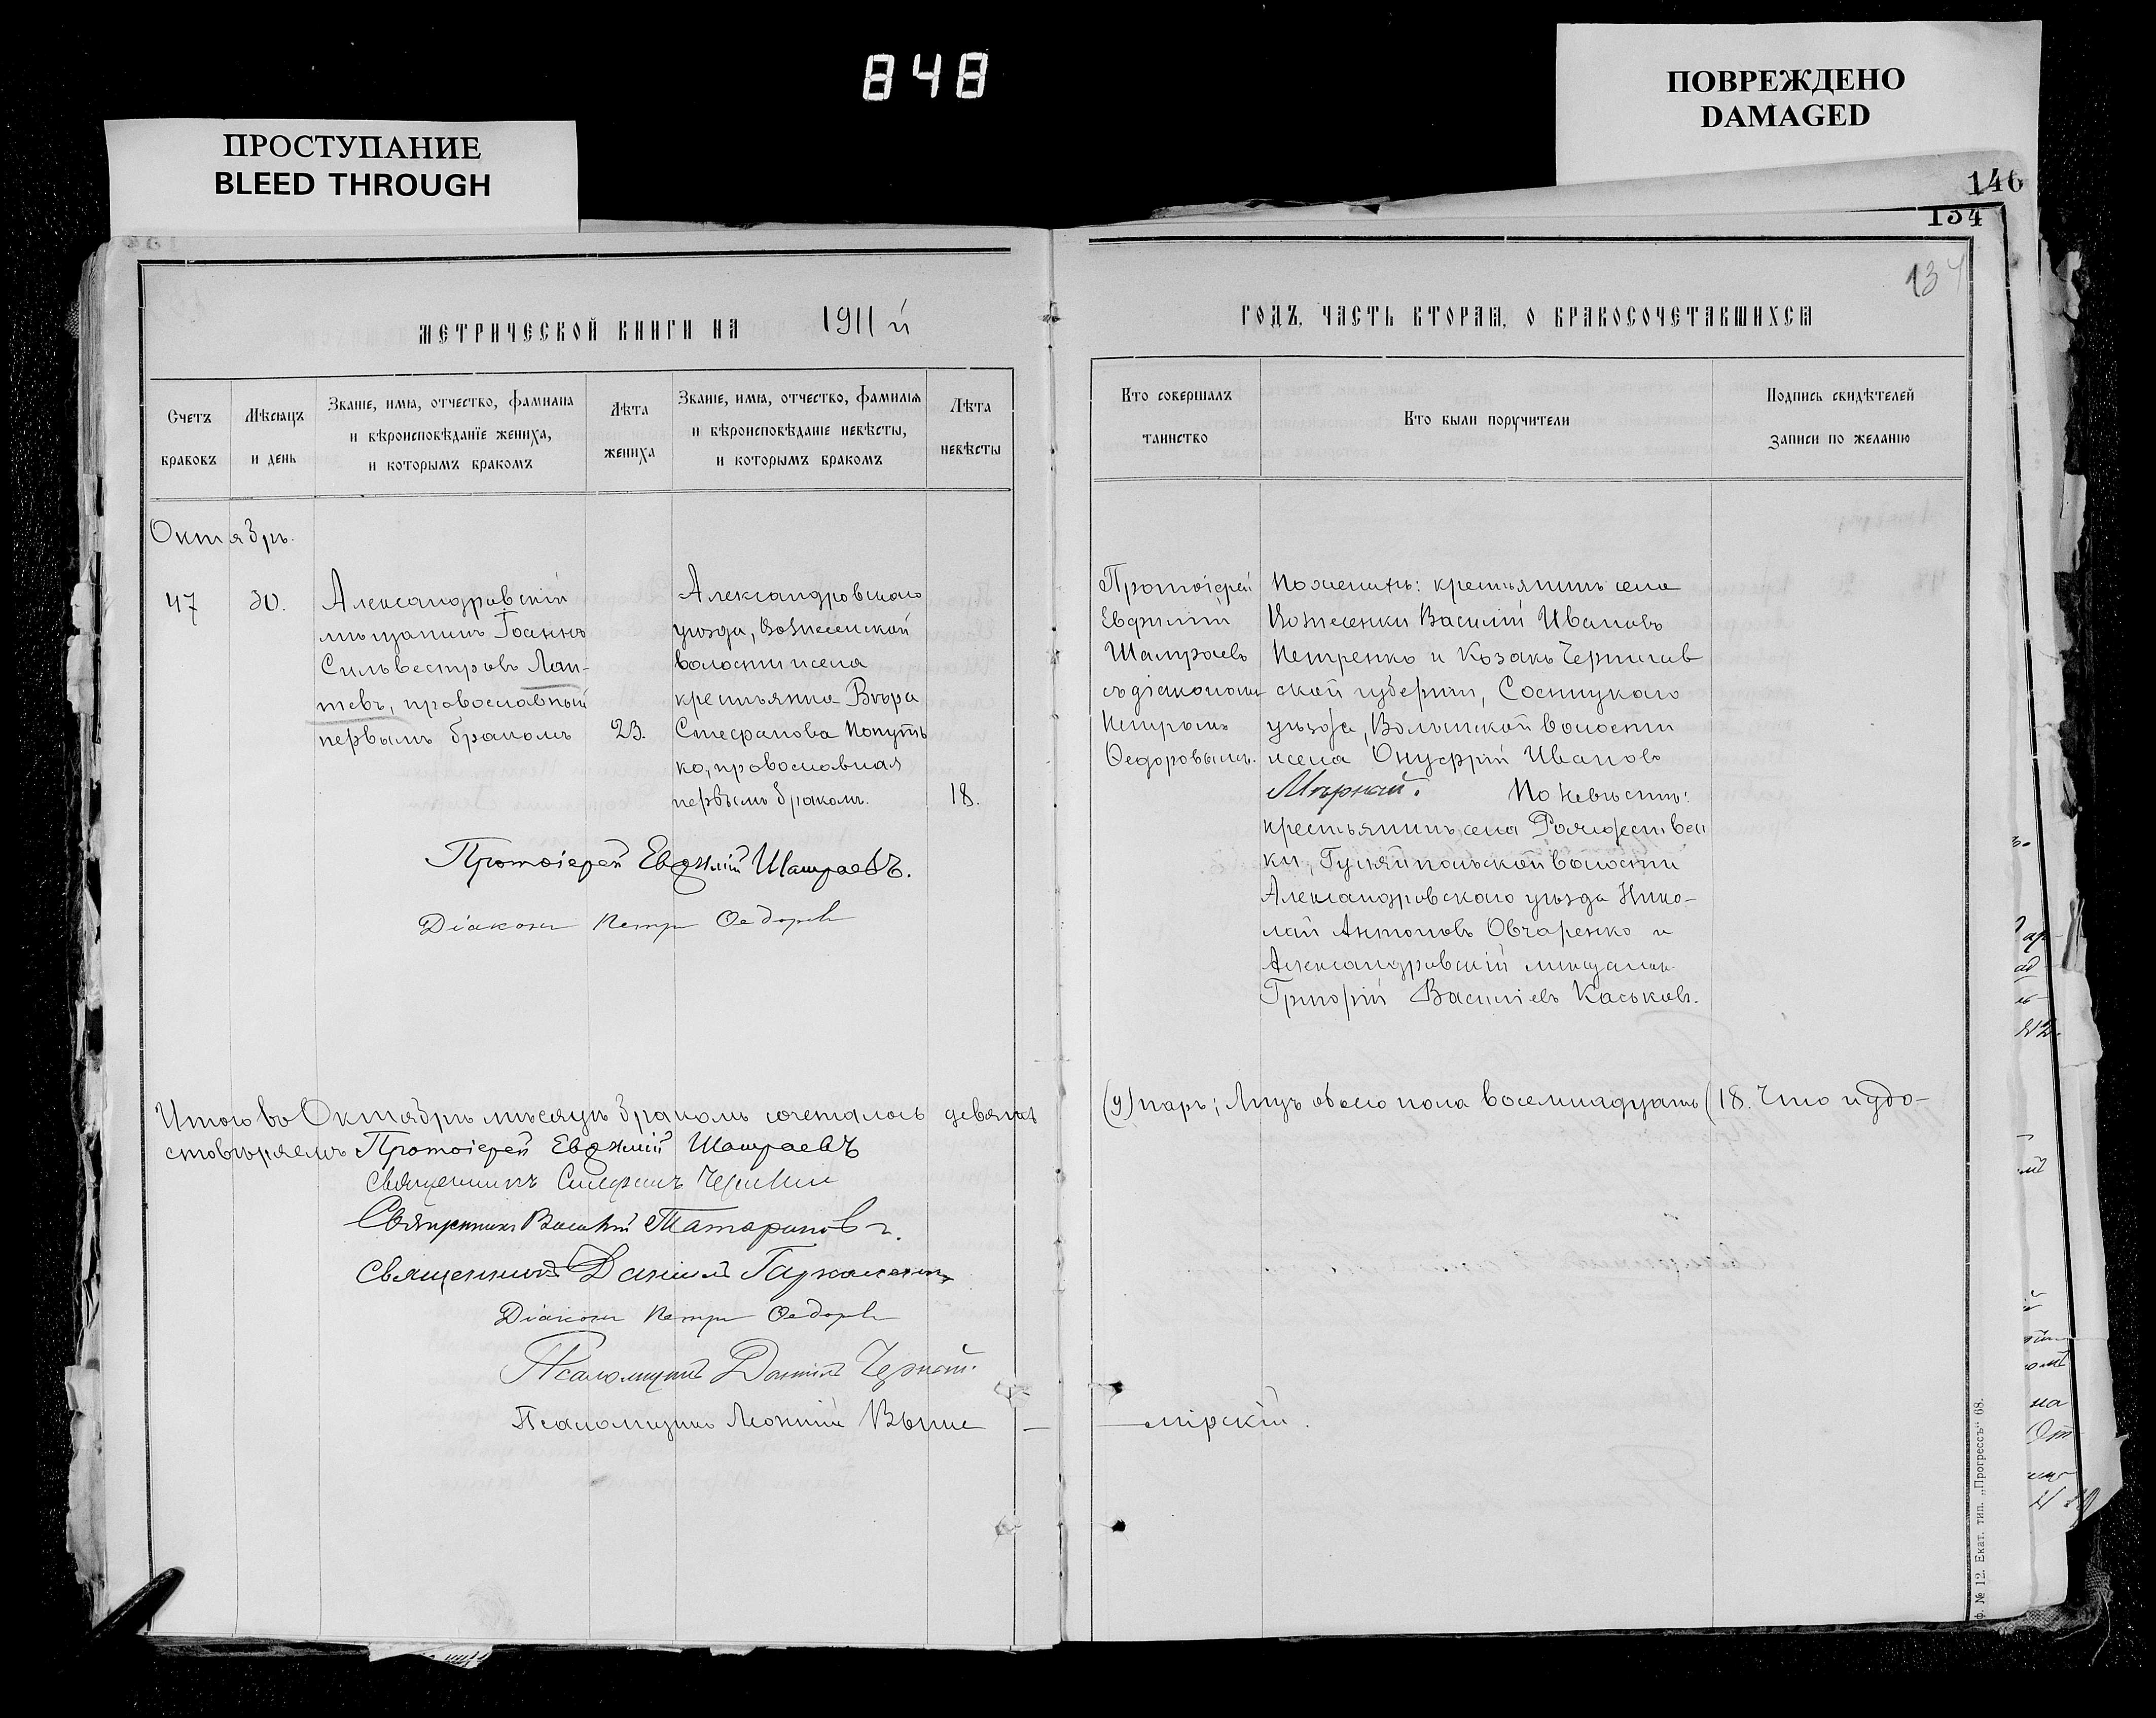 848
ПРОСТУПАНИЕ
BLEED THROUGH
ПОВРЕЖДЕНО
DAMAGED
146
134
134
МЕТРИЧЕСКОЙ КНИГИ НА 1911 й
Счетъ
браковъ
Мѣсяцъ
и день
Званіе, имя, отчество, фамилія
и вѣроисповѣданіе жениха,
и которымъ бракомъ
Лѣта
жениха
Званіе, имя, отчество, фамилія
и вѣроисповѣданіе невѣсты,
и которымъ бракомъ
Лѣта
невѣсты
Октябрь.
47
30.
Александровскій
мѣщанинъ Іоаннъ
Сильвестровъ Лап-
тевъ, православный
первымъ бракомъ
23.
Александровскаго
уѣзда, Вознесенской
волости и села
крестьянка Вѣра
Стефанова Попуть
ко, православная
первымъ бракомъ.
18.
Протоіерей Евѳимій Шамраевъ.
Діаконъ Петръ Ѳедоровъ
Итого во Октябрѣ мѣсяцѣ бракомъ сочеталось девять
стовѣряемъ Протоіерей Евѳимій Шамраевъ
Священникъ
Священникъ Василій Татариновъ.
Священникъ Даніилъ
Діаконъ Петръ Ѳедоровъ
Псаломщикъ Черный.
Псаломщикъ Леонтій Выше –
ГОДЪ, ЧАСТЬ ВТОРАЯ, О БРАКОСОЧЕТАВШИХСЯ
Кто совершалъ
таинство
Кто были поручители
Подпись свидѣтелей
записи по желанію
Протоіерей
Евфимій
Шамраевъ
съ діакономъ
Петромъ
Ѳедоровымъ.
По женихѣ: крестьянинъ села
Вознесенки Василій Ивановъ
Петренко и Козакъ Чернигов
ской губерніи, Сосницкаго
уѣзда, Волынской волости
и села Онуфрій Ивановъ
Мѣрный. По невѣстѣ:
крестьянинъ села Рождествен
ки, Гуляйпольской волости
Александровскаго уѣзда Нико-
лай Антоновъ Овчаренко и
Александровскій мѣщанинъ
Григорій Василіевъ Каськовъ.
(9) паръ; Лицъ обоего пола восемнадцать (18. Что и удо-
– мірскій.
ф. № 12. Екат. тип. „Прогрессъ“ 68.